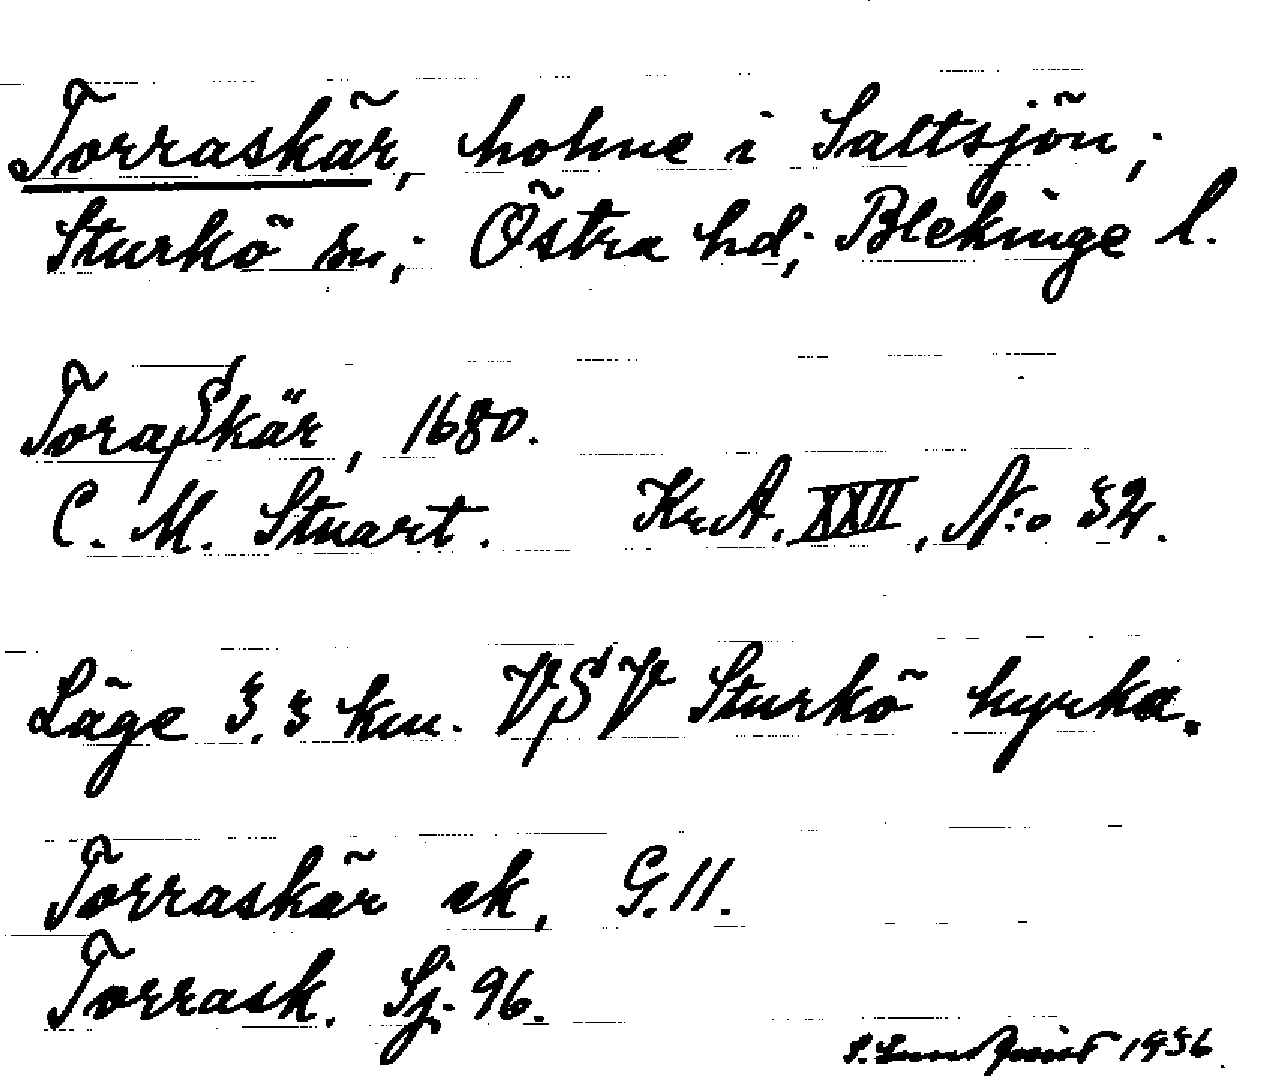 Torraskär, holme i Saltsjön;
Sturkö sn; Östra hd; Blekinge l.
Toraskär, 1680.
C. M. Stuart. KrA. XXII, N:o 32.
Läge 3.3 km. VSV Sturkö kyrka.
Torraskär ek, G.11.
Torrask. Sj. 96.
1936